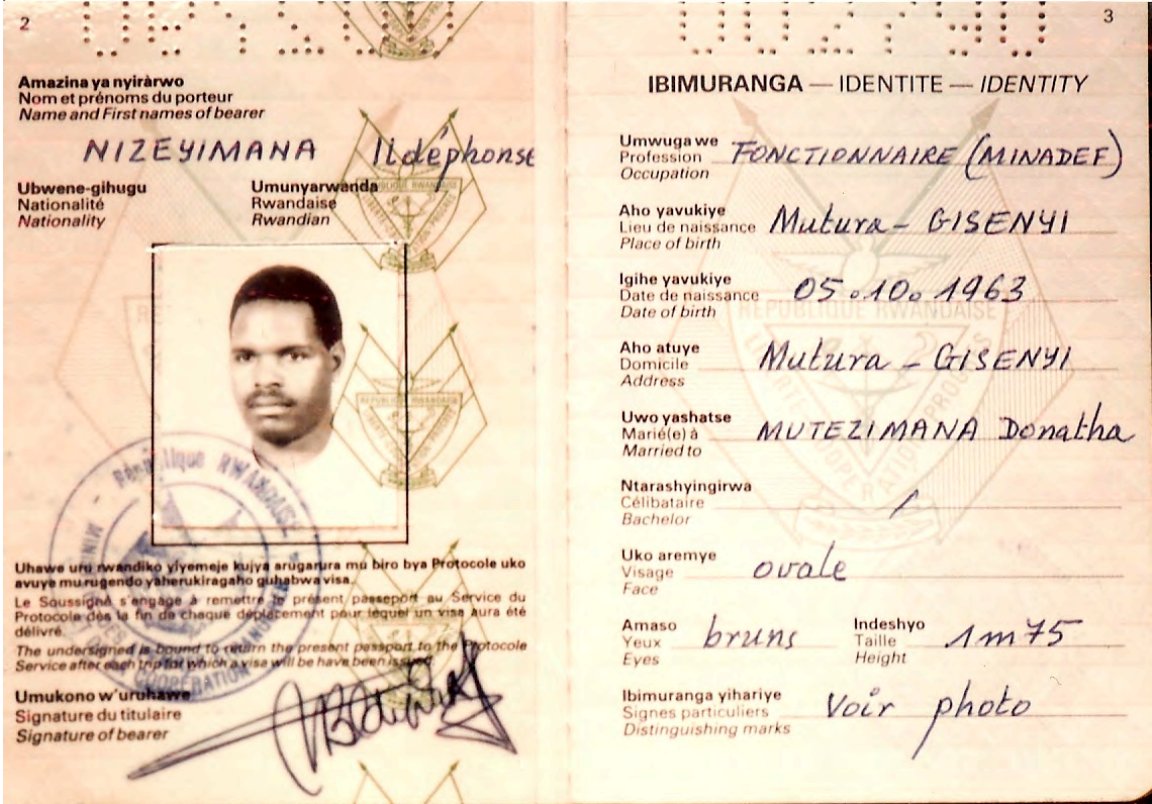 2
Amazina ya nyiràrwo
Nom et prénoms du porteur
Name and First names of bearer
NIZEYIMANA Ildéphonse
Ubwene-gihugu Umunyarwanda
Nationalité Rwandaise
Nationality Rwandian
REPUBLIQUE RWANDAISE
Uhawe uru rwandiko yiyemeje kujya arugarura mu biro bya Protocole uko
avuye mu rugendo yaherukiragaho guhabwa visa.
Le Soussigné s'engage à remettre le présent passeport au Service du
Protocole dès la fin de chaque déplacement pour lequel un visa aura été
délivré.
The undersigned is bound to return the present passport to the Protocole
Service after each trip for which a visa will be have been issued.
République RWANDAISE
COOPERATION
Umukono w'uruhawe
Signature du titulaire
Signature of bearer
3
IBIMURANGA — IDENTITE — IDENTITY
Umwuga we
Profession FONCTIONNAIRE (MINADEF)
Occupation
Aho yavukiye
Lieu de naissance Mutura - GISENYI
Place of birth
Igihe yavukiye
Date de naissance 05.10.1963
Date of birth
REPUBLIQUE RWANDAISE
Aho atuye
Domicile Mutura - GISENYI
Address
Uwo yashatse
Marié(e) à MUTEZIMANA Donatha
Married to
Ntarashyingirwa
Célibataire /
Bachelor
Uko aremye
Visage ovale
Face
Amaso Indeshyo
Yeux bruns Taille 1m75
Eyes Height
Ibimuranga yihariye
Signes particuliers Voir photo
Distinguishing marks